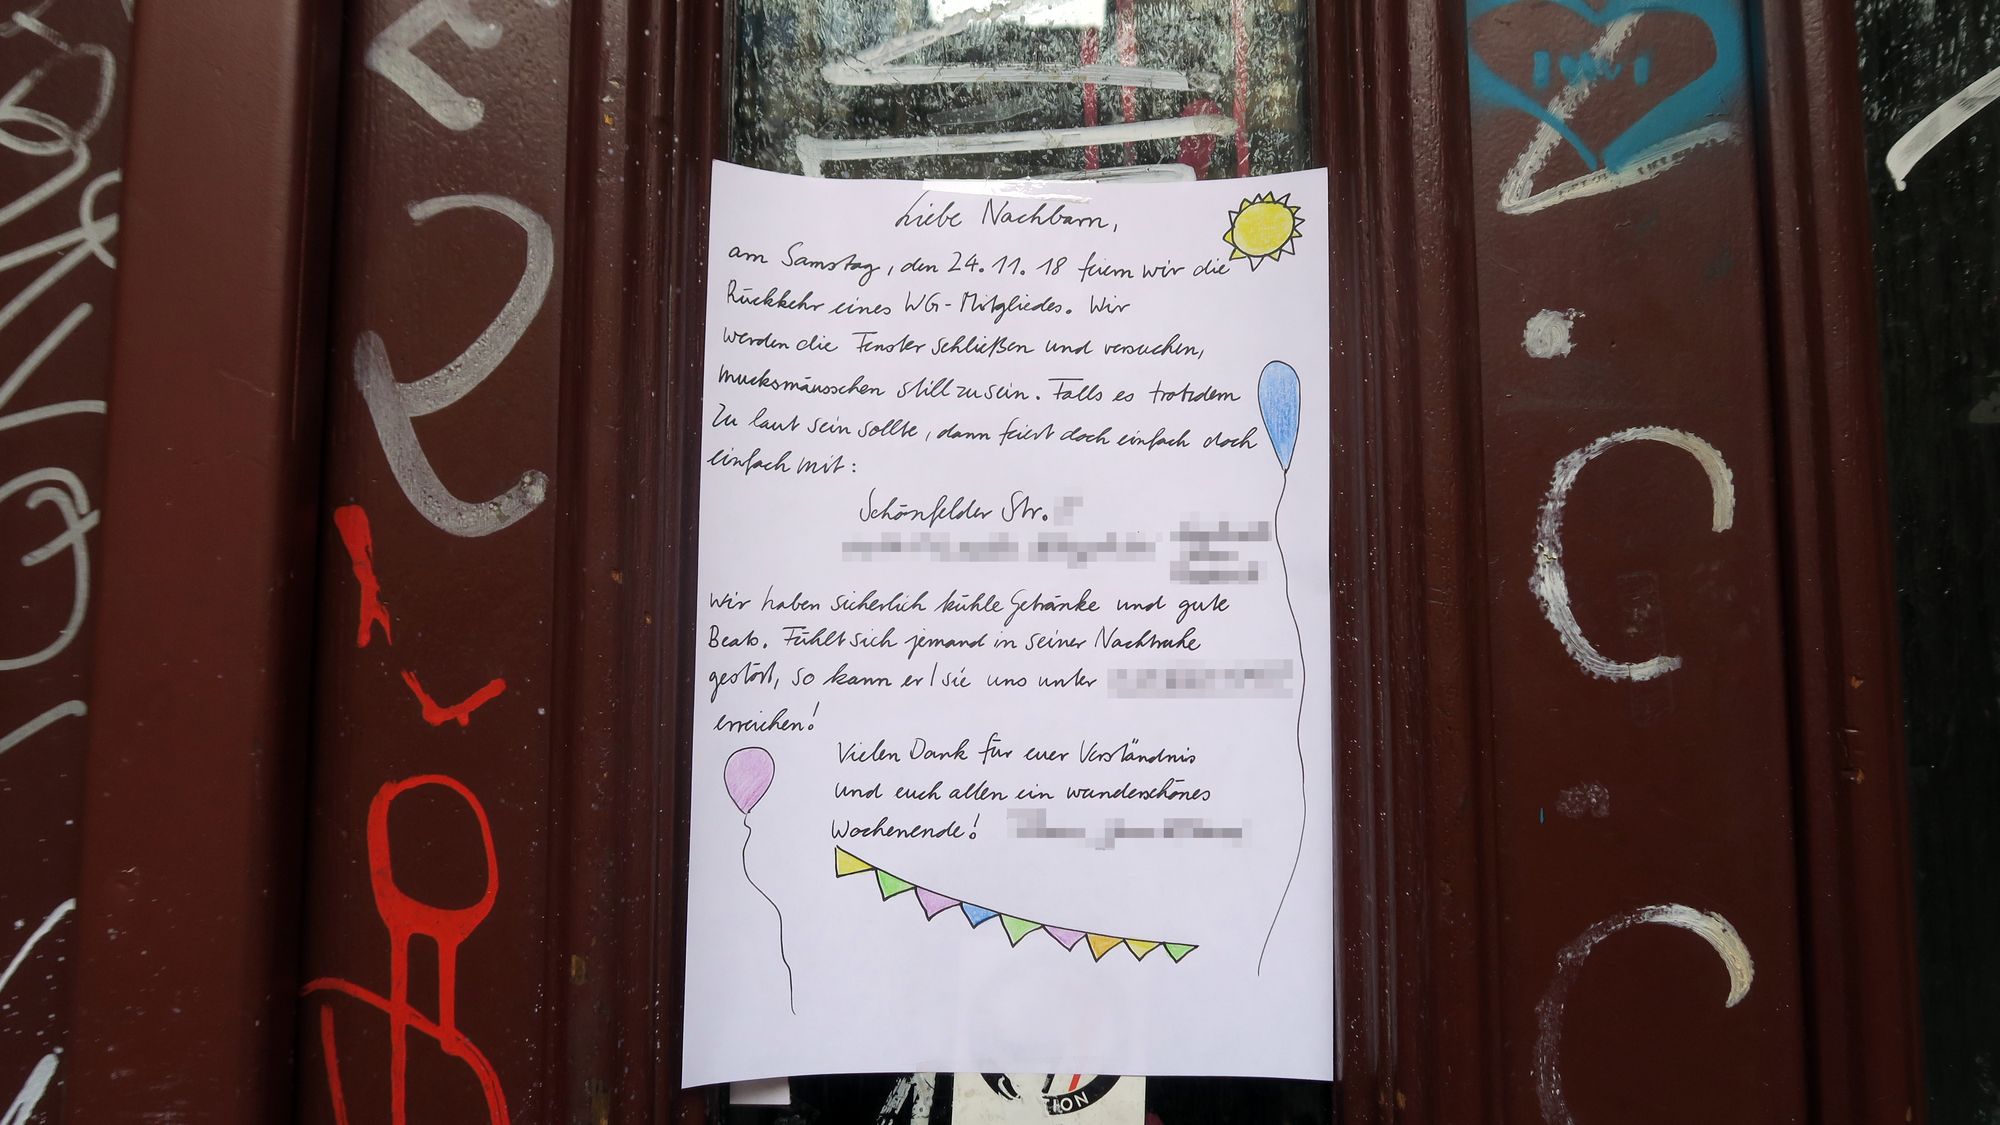 Liebe Nachbarn,
am Samstag, den 24.11.18 feiern wir die
Rückkehr eines WG-Mitgliedes. Wir
werden die Fenster schließen und versuchen,
mucksmäusschen still zu sein. Falls es trotzdem
zu laut sein sollte, dann feiert doch einfach doch
einfach mit:
Schönfelder Str.
Wir haben sicherlich kühle Getränke und gute
Beats. Fühlt sich jemand in seiner Nachtruhe
gestört, so kann er/sie uns unter
erreichen!
Vielen Dank für euer Verständnis
und euch allen ein wunderschönes
Wochenende!
TION